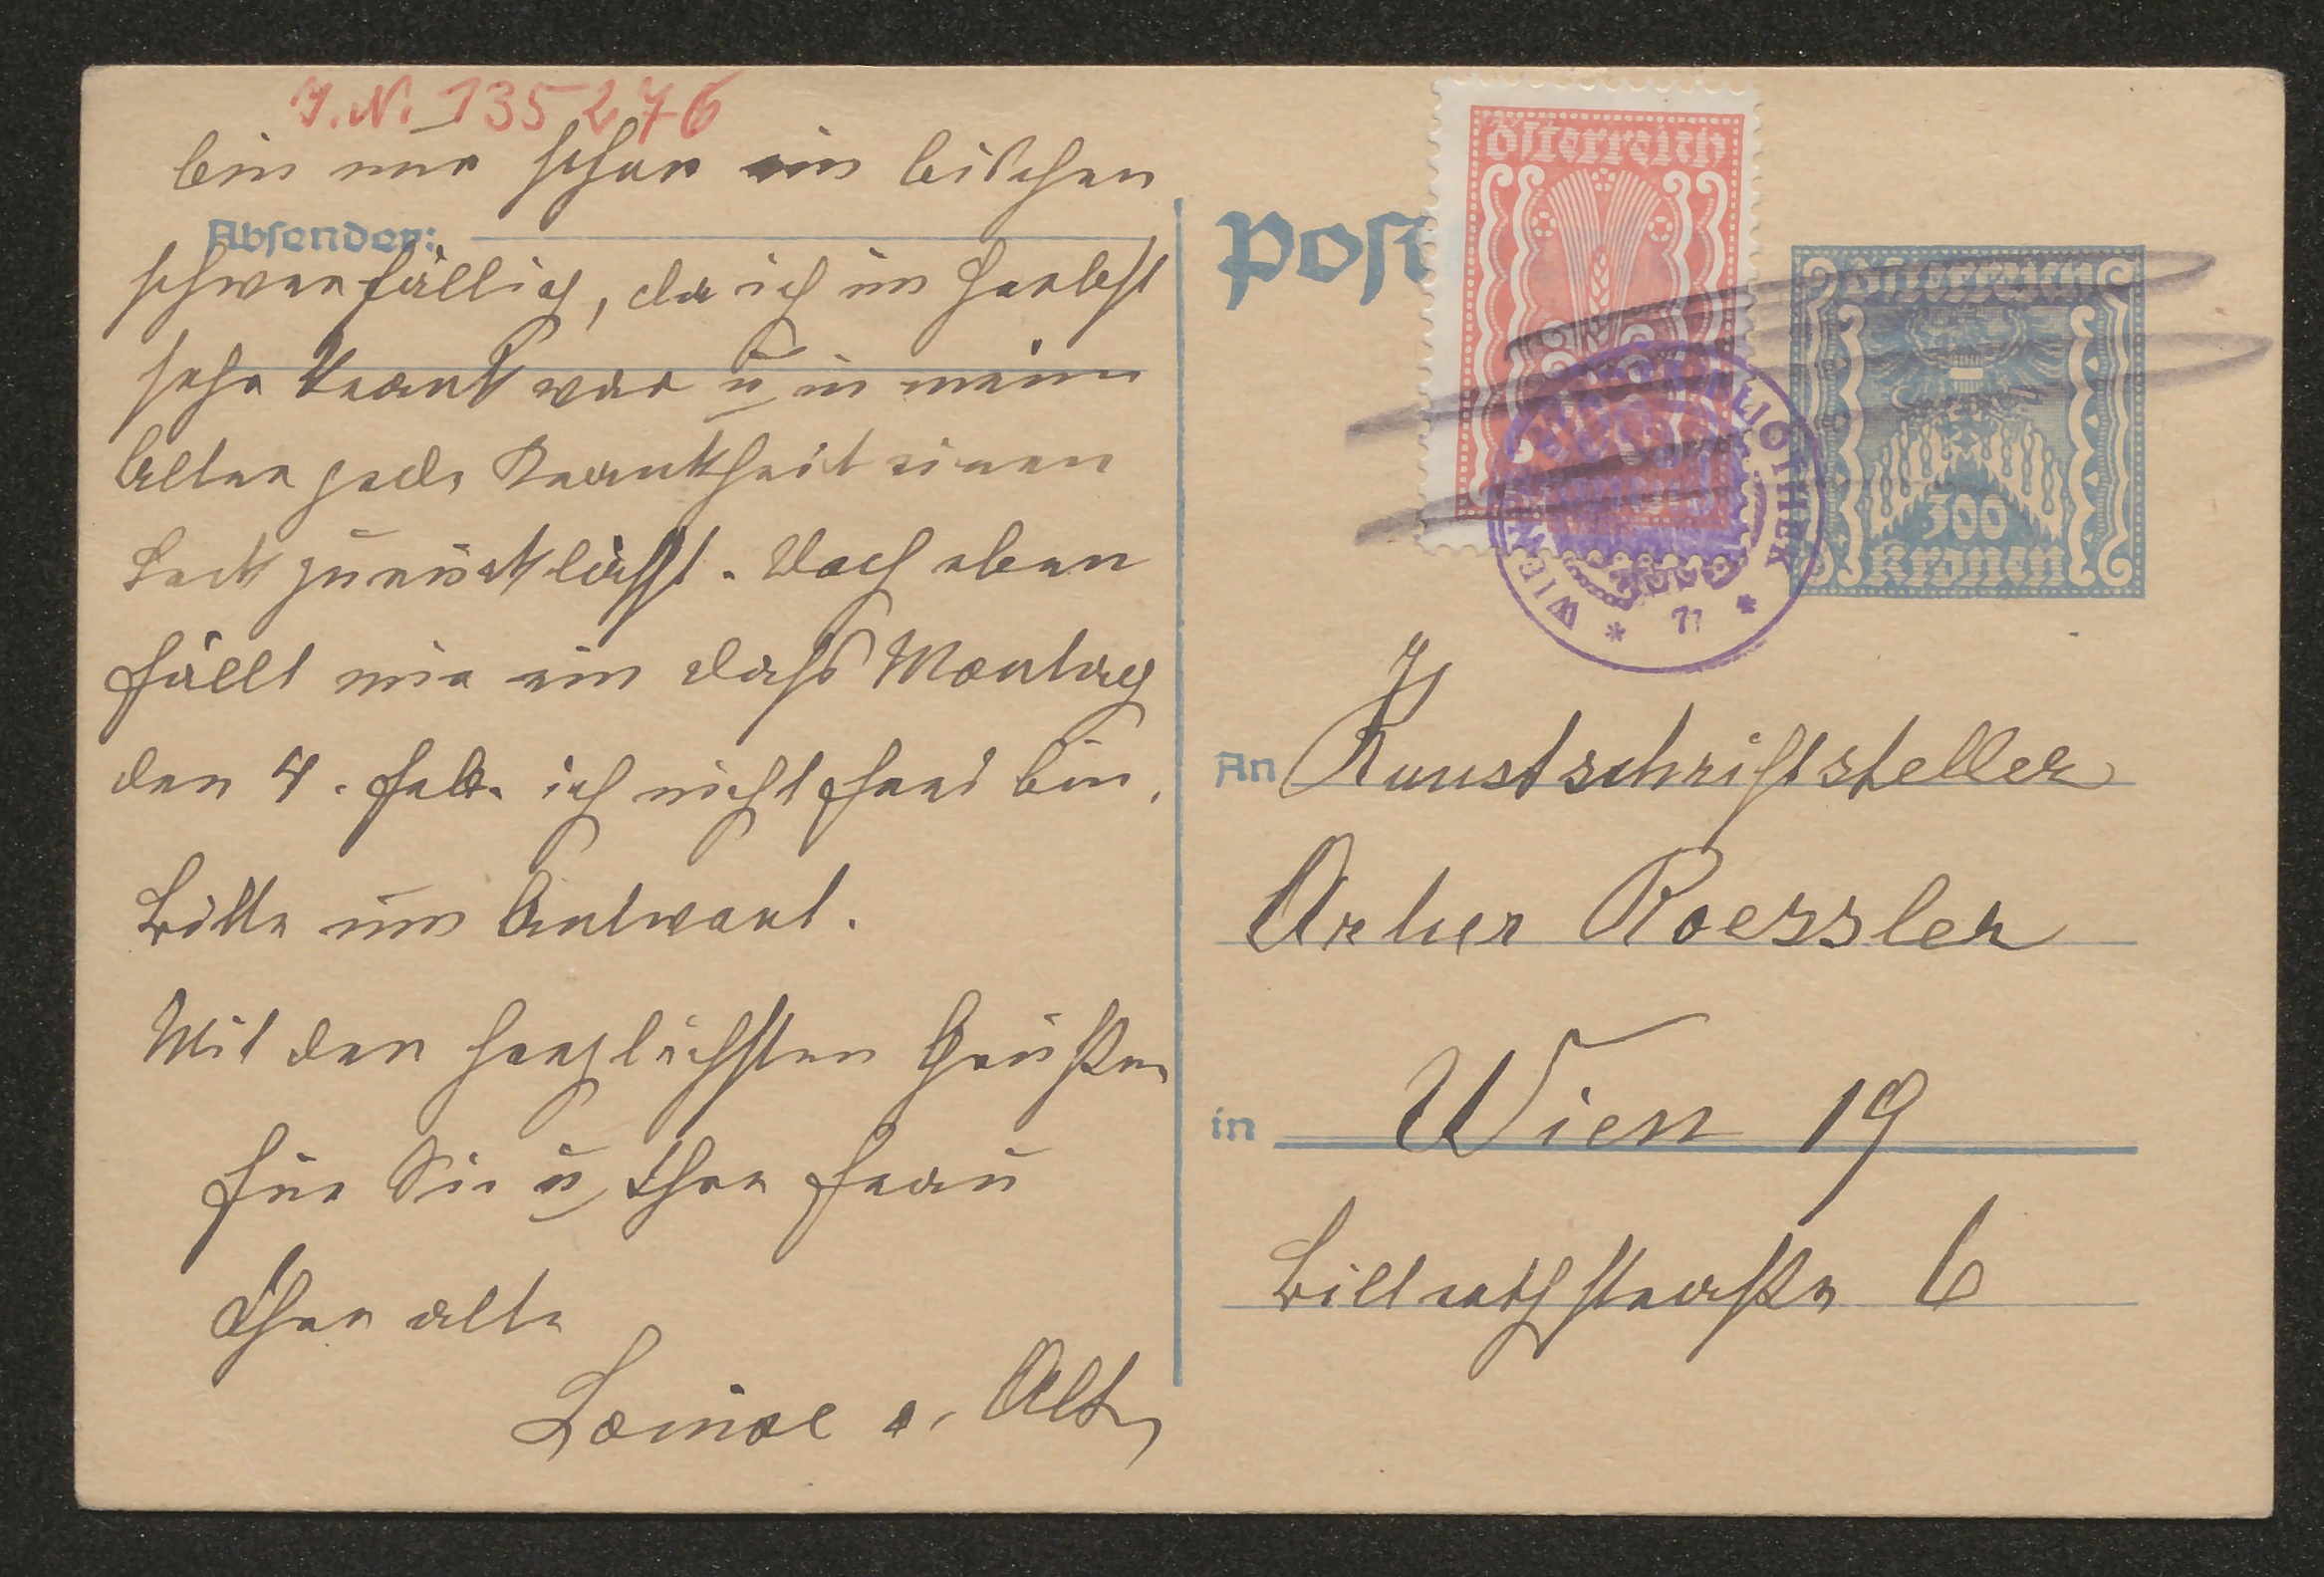 J. N. 135276
bin nur schon ein bißchen
Absender:
schwerfällig, da ich im Herbst
sehr krank war u in meinem
Alter jede Krankheit einen
Leck zurückläßt. Doch eben
fällt mir ein daß Montag
den 4. Feb. ich nicht frei bin.
Bitte um Antwort.
Mit den herzlichsten Grüßen
für Sie u Ihre Frau
Ihre alte
Louise v. Alt
Post
Österreich
Österreich
500
Kronen
WIEN
An Kunstschriftsteller
Artur Roessler
in Wien 19
Billrothstraße 6